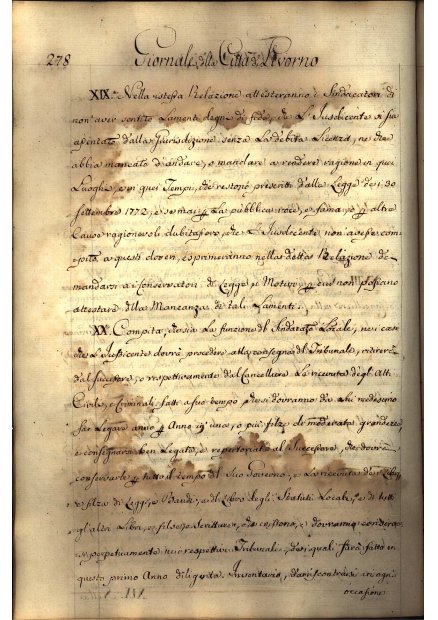 278
Giornale della Città di Livorno
XIX. Nella stessa Relazione attesteranno i Sindacatori di
non aver sentito Lamenti degni di fede, che L'Jusdicente si sia
assentato dalla Giurisdizione senza La debita Licenza, ne che
abbia mancato d'andare, o mandare a rendere ragione in quei
Luoghi, e in quei Tempi, che restono prescritti dalla Legge de' 30
Settembre 1772, e se mai p La pubblica voce, e fama, o p altre
Cause ragionevoli dubitassero, che L'Jusdicente non avesse com
a questi doveri, esprimeranno nella detta Relazione da
mandarsi a' Conservatori di Legge il Motivo p cui non possono
attestare della Mancanza di tali Lamenti.
XX. Compita, che sia La funzione del Sindacato Locale, nei casi
che L'Jusdicente dovrà procedere alla consegna del Tribunale, ritirerà
dal Successore, o respettivamente dal Cancelliere La ricevuta degli Atti
Civili, e Criminali fatti a suo tempo, che si dovranno da Lui medesimo
far Legare anno p Anno in uno, o più filze di moderata grandezza
e consegnarsi ben Legate, e repertoriate al Successore, che dovrà
conservarle p tutto il tempo del Suo Governo, e La ricevuta dei Libri,
e filza di Leggi, e Bandi, e del Libro degli Statuti Locali, e di tutti
gl'altri Libri, e filze, e Scritture, che esistono, e dovranno conservarsi
perpetuamente nei respettivi Tribunali, dei quali sarà fatto in
questo primo Anno diligente Inventario, da riscontrarsi in ogni
occasione